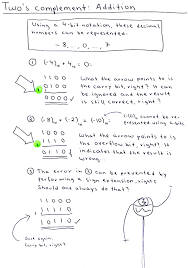 Two's Complement: Addition
Using a 4-bit notation, these decimal
numbers can be represented:
-8, ..., 0, ..., 7
① (-4)₁₀ + 4₁₀ = 0:
1100
0100
10000
What the arrow points to is
the carry bit, right? It can
be ignored and the result
is still correct, right?
② (-8)₁₀ + (-2)₁₀ = (-10)₁₀
(-10)₁₀ cannot be re-
presented using 4-bits
1000
1110
10110
What the arrow points to is
the overflow bit, right? It
indicates that the result is
wrong.
③ The error in ② can be prevented by
performing a sign extension, right?
Should one always do that?
11000
11110
110110
Once again,
carry bit, right?